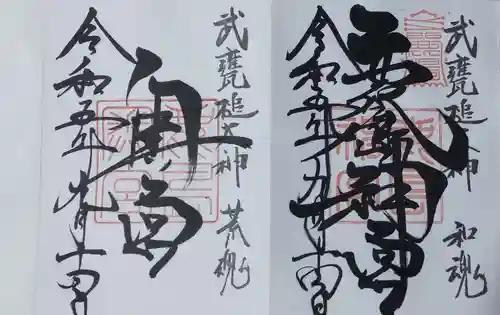 武甕槌大神 和魂
鹿島神宮
令和五年九月十四日
武甕槌大神 荒魂
奥宮
令和五年九月十四日